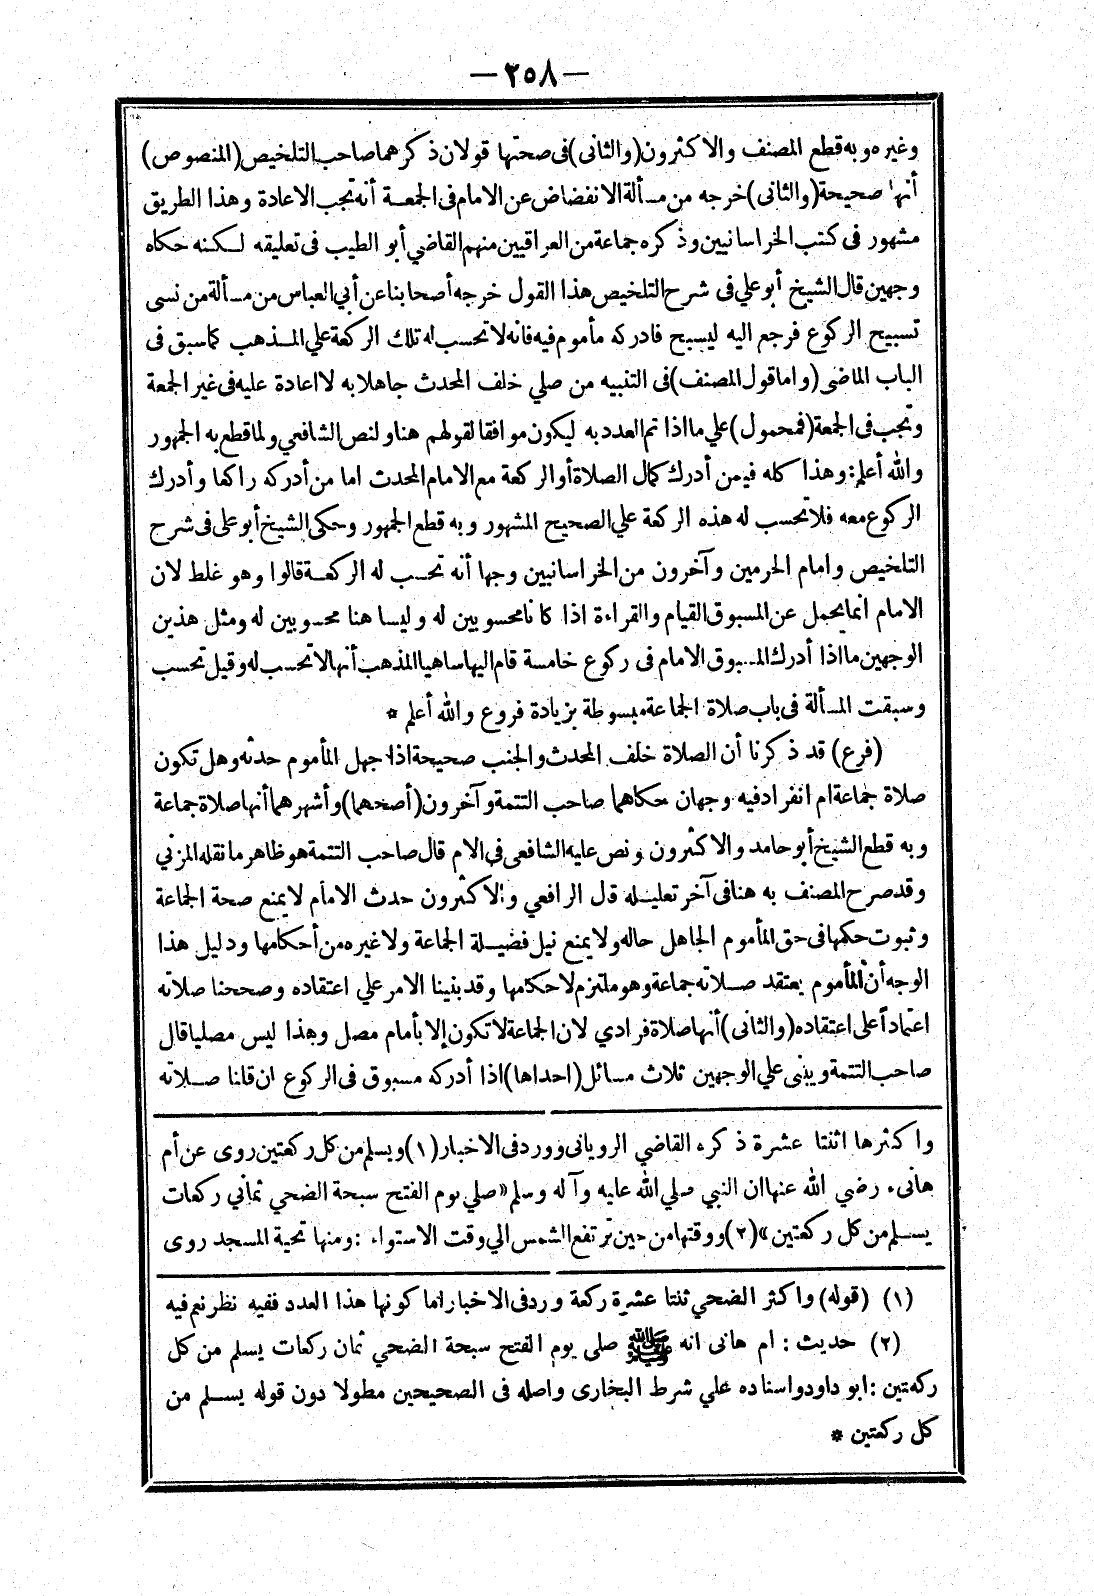 — ٢٥٨ —
وغيره وبه قطع المصنف والاكثرون (والثاني) في صحتها قولان ذكرهما صاحب التلخيص (المنصوص)
أنها صحيحة (والثاني) خرجه من مسألة الانفضاض عن الامام في الجمعة أنه تجب الاعادة وهذا الطريق
مشهور في كتب الخراسانيين وذكره جماعة من العراقيين منهم القاضي أبو الطيب في تعليقه لكنه حكاه
وجهين قال الشيخ أبو علي في شرح التلخيص هذا القول خرجه أصحابنا عن أبي العباس من مسألة من نسى
تسبيح الركوع فرجع اليه ليسبح فادركه مأموم فيه فانه لا تحسب له تلك الركعة علي المذهب كما سبق فى
الباب الماضى (واما قول المصنف) فى التنبيه من صلي خلف المحدث جاهلا به لا اعادة عليه فى غير الجمعة
وتجب فى الجمعة (فمحمول) علي ما اذا تم العدد به ليكون موافقا لقولهم هنا ولنص الشافعي ولما قطع به الجمهور
والله أعلم : وهذا كله فيمن أدرك كمال الصلاة أو الركعة مع الامام المحدث اما من أدركه راكعا وأدرك
الركوع معه فلا تحسب له هذه الركعة علي الصحيح المشهور وبه قطع الجمهور وحكى الشيخ أبو على فى شرح
التلخيص وامام الحرمين وآخرون من الخراسانيين وجها أنه تحسب له الركعة قالوا وهو غلط لان
الامام انما يحمل عن المسبوق القيام والقراءة اذا كانا محسوبين له وليسا هنا محسوبين له ومثل هذين
الوجهين ما اذا أدرك المسبوق الامام فى ركوع خامسة قام اليها ساهيا المذهب أنها لا تحسب له وقيل تحسب
وسبقت المسألة فى باب صلاة الجماعة مبسوطة بزيادة فروع والله أعلم *
(فرع) قد ذكرنا أن الصلاة خلف المحدث والجنب صحيحة اذا جهل المأموم حدثه وهل تكون
صلاة جماعة ام انفراد فيه وجهان حكاهما صاحب التتمة وآخرون (أصحهما) وأشهرهما أنها صلاة جماعة
وبه قطع الشيخ أبو حامد والاكثرون ونص عليه الشافعى في الام قال صاحب التتمة هو ظاهر ما نقله المزني
وقد صرح المصنف به هنا فى آخر تعليله قال الرافعي والاكثرون حدث الامام لا يمنع صحة الجماعة
وثبوت حكمها فى حق المأموم الجاهل حاله ولا يمنع نيل فضيلة الجماعة ولا غيره من أحكامها ودليل هذا
الوجه أن المأموم يعتقد صلاته جماعة وهو ملتزم لاحكامها وقد بنينا الامر علي اعتقاده وصححنا صلاته
اعتماداً على اعتقاده (والثانى) أنها صلاة فرادي لان الجماعة لا تكون إلا بأمام مصل وهذا ليس مصليا قال
صاحب التتمة وينبى علي الوجهين ثلاث مسائل (احداها) اذا أدركه مسبوق فى الركوع ان قلنا صلاته
واكثرها اثنتا عشرة ذكره القاضي الروياني وورد فى الاخبار (١) ويسلم من كل ركعتين روى عن أم
هانىء رضي الله عنها ان النبي صلي الله عليه وآله وسلم « صلي يوم الفتح سبحة الضحي ثماني ركعات
يسلم من كل ركعتين » (٢) ووقتها من حين ترتفع الشمس الي وقت الاستواء : ومنها تحية المسجد روى
(١) (قوله) واكثر الضحي ثنتا عشرة ركعة ورد فى الاخبار اما كونها هذا العدد ففيه نظر نعم فيه
(٢) حديث : ام هانى انه ﷺ صلى يوم الفتح سبحة الضحي ثمان ركعات يسلم من كل
ركعتين : ابو داود واسناده علي شرط البخارى واصله فى الصحيحين مطولا دون قوله يسلم من
كل ركعتين *